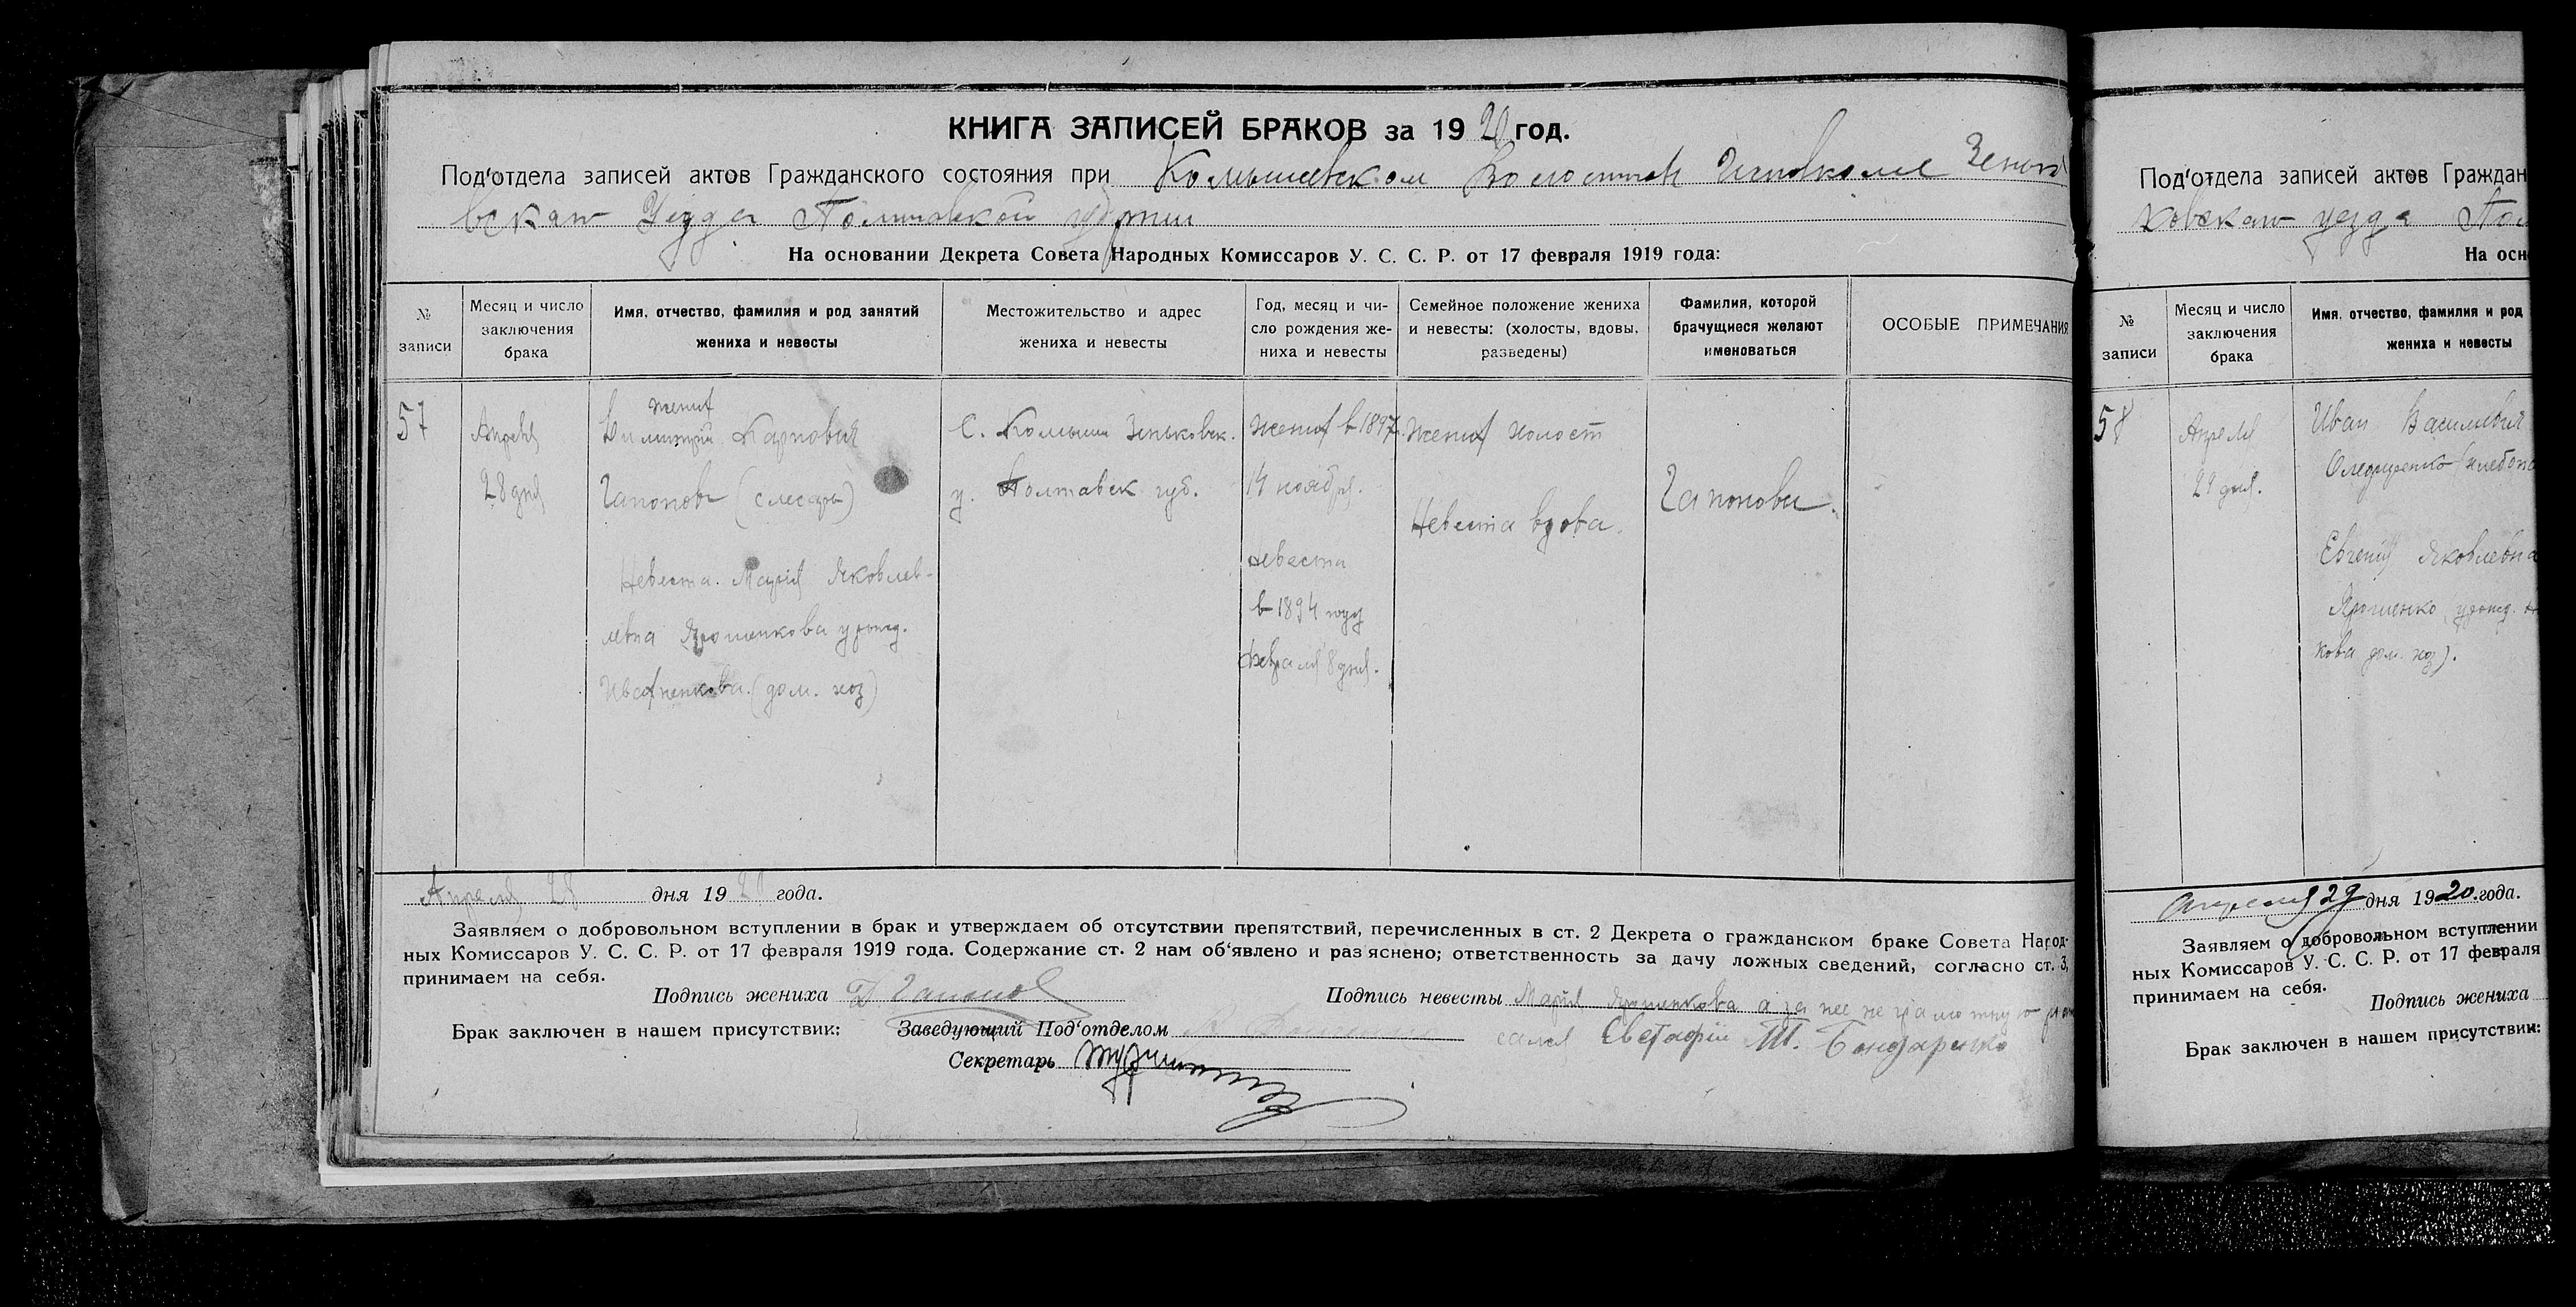 КНИГА ЗАПИСЕЙ БРАКОВ за 1920 год.
Под'отдела записей актов Гражданского состояния при Комышевском Волостном Исполкоме Зеньк
вскаго Уезда Полтавской губернии
На основании Декрета Совета Народных Комиссаров У. С. С. Р. от 17 февраля 1919 года:
№ записи
Месяц и число заключения брака
Имя, отчество, фамилия и род занятий жениха и невесты
Местожительство и адрес жениха и невесты
Год, месяц и чи-
сло рождения же-
ниха и невесты
Семейное положение жениха
и невесты: (холосты, вдовы,
разведены)
Фамилия, которой
брачущиеся желают
именоваться
ОСОБЫЕ ПРИМЕЧАНИЯ
57
Апреля
28 дня
жених
Карпович
Гапонов (слесарь)
Невеста. Мария Яковлев-
левна Ярошенкова урожд.
(дом. хоз)
с. Комыши Зеньковск.
у. Полтавск губ.
Жених в 1897
14 ноября.
невеста
в 1894 году
февраля 8 дня.
Жених холост
Невеста вдова.
Гапоновы.
Апреля 28 дня 1920 года.
Заявляем о добровольном вступлении в брак и утверждаем об отсутствии препятствий, перечисленных в ст. 2 Декрета о гражданском браке Совета Народ-
ных Комиссаров У. С. С. Р. от 17 февраля 1919 года. Содержание ст. 2 нам об'явлено и раз'яснено; ответственность за дачу ложных сведений, согласно ст. 3,
принимаем на себя.
Подпись жениха Д Гапонов
Подпись невесты Мария Ярошенкова а за нее неграмотную рос
сался Евстафий Т. Бондаренко
Брак заключен в нашем присутствии: Заведующий Под'отделом
Секретарь
Под'отдела записей актов Граждан
ховскаго уезда Пол
На осн
№ записи
Месяц и число
заключения
брака
Имя, отчество, фамилия и род
жениха и невесты
58
Апреля
29 дня.
Иван Васильевич
Евгения Яковлевна
Ярошенко урожд.
кова дом. хоз).
Апреля 29 дня 1920. года.
Заявляем о добровольном вступлении
ных Комиссаров У. С. С. Р. от 17 февраля
принимаем на себя.
Подпись жениха
Брак заключен в нашем присутствии: